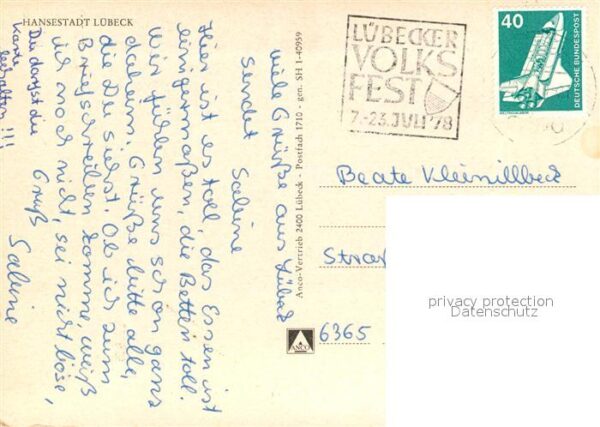 HANSESTADT LÜBECK
viele Grüße aus Lübeck
sendet Sabine
Hier ist es toll, das Essen ist
einigermaßen, die Betten toll.
Wir fühlen uns schon ganz
daheim. Grüße bitte alle,
die Du siehst. Ob ich zum
Briefschreiben komme, weiß
ich noch nicht, sei nicht böse,
Gruß Sabine
Du darfst die
Karte
behalten!!!
Anco-Vertrieb 2400 Lübeck - Postfach 1710 - gen. SH 1-40959
ANCO
LÜBECKER
VOLKS
FEST
7.-23. JULI '78
40
DEUTSCHE BUNDESPOST
Beate Kleinillbeck
Straß
6365
privacy protection
Datenschutz